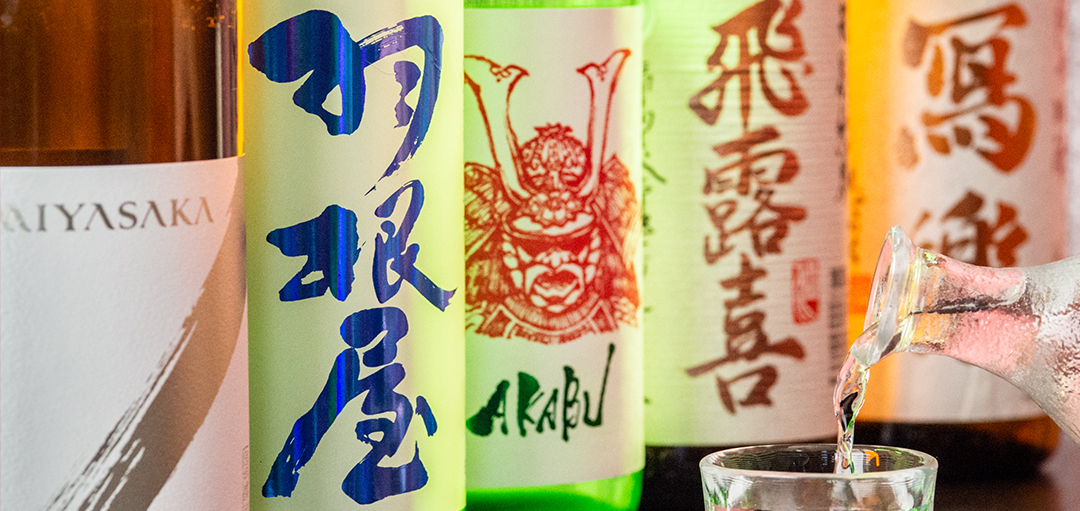 AIYASAKA
羽根屋
AKABU
飛露喜
寫樂